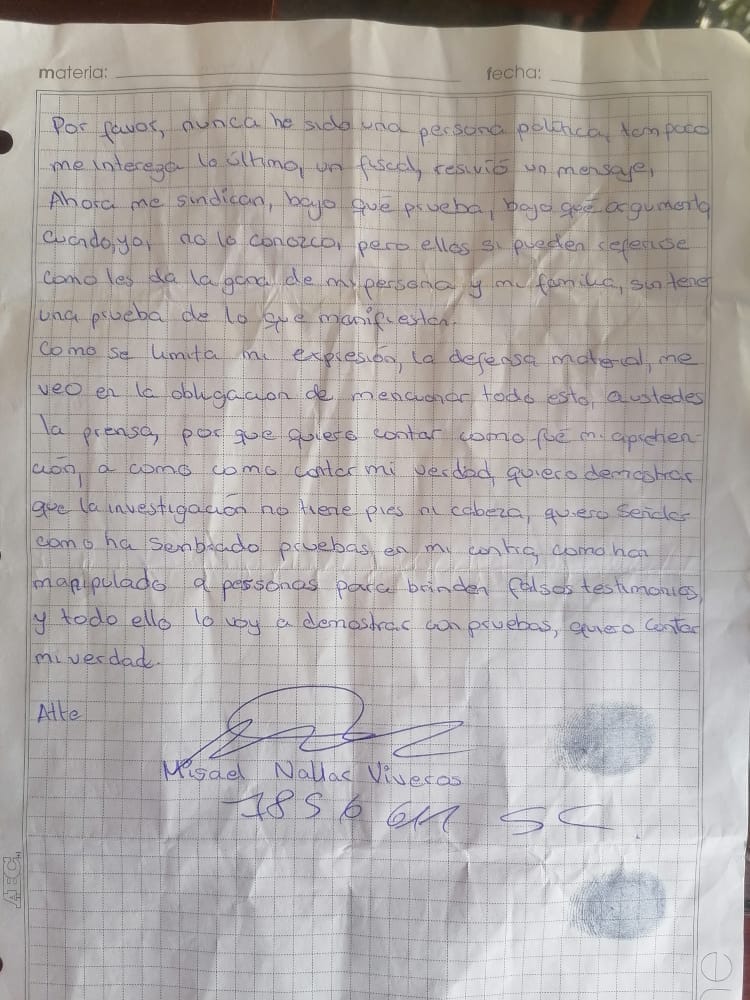 materia: fecha:
Por favor, nunca he sido una persona política, tampoco
me interega lo último, un fiscal, resivió un mensaje,
Ahora me sindican, bajo qué prueba, bajo qué argumento
cuando, yo, no lo conozco, pero ellos si pueden referirse
como les da la gana de mi persona y mi familia, sin tener
una prueba de lo que manifiestan.
Como se limita mi expresión, la defensa material, me
veo en la obligación de mencionar todo esto, a ustedes
la prensa, por que quiero contar como fué mi aprehen-
ción, a como como contar mi verdad, quiero demostrar
que la investigación no tiene pies ni cabeza, quiero señalar
como ha senbrado pruebas, en mi contra, como han
manipulado a personas para brinden falsos testimonios,
y todo ello lo voy a demostrar con pruebas, quiero contar
mi verdad.
Atte
Misael Nallar Viveros
SC